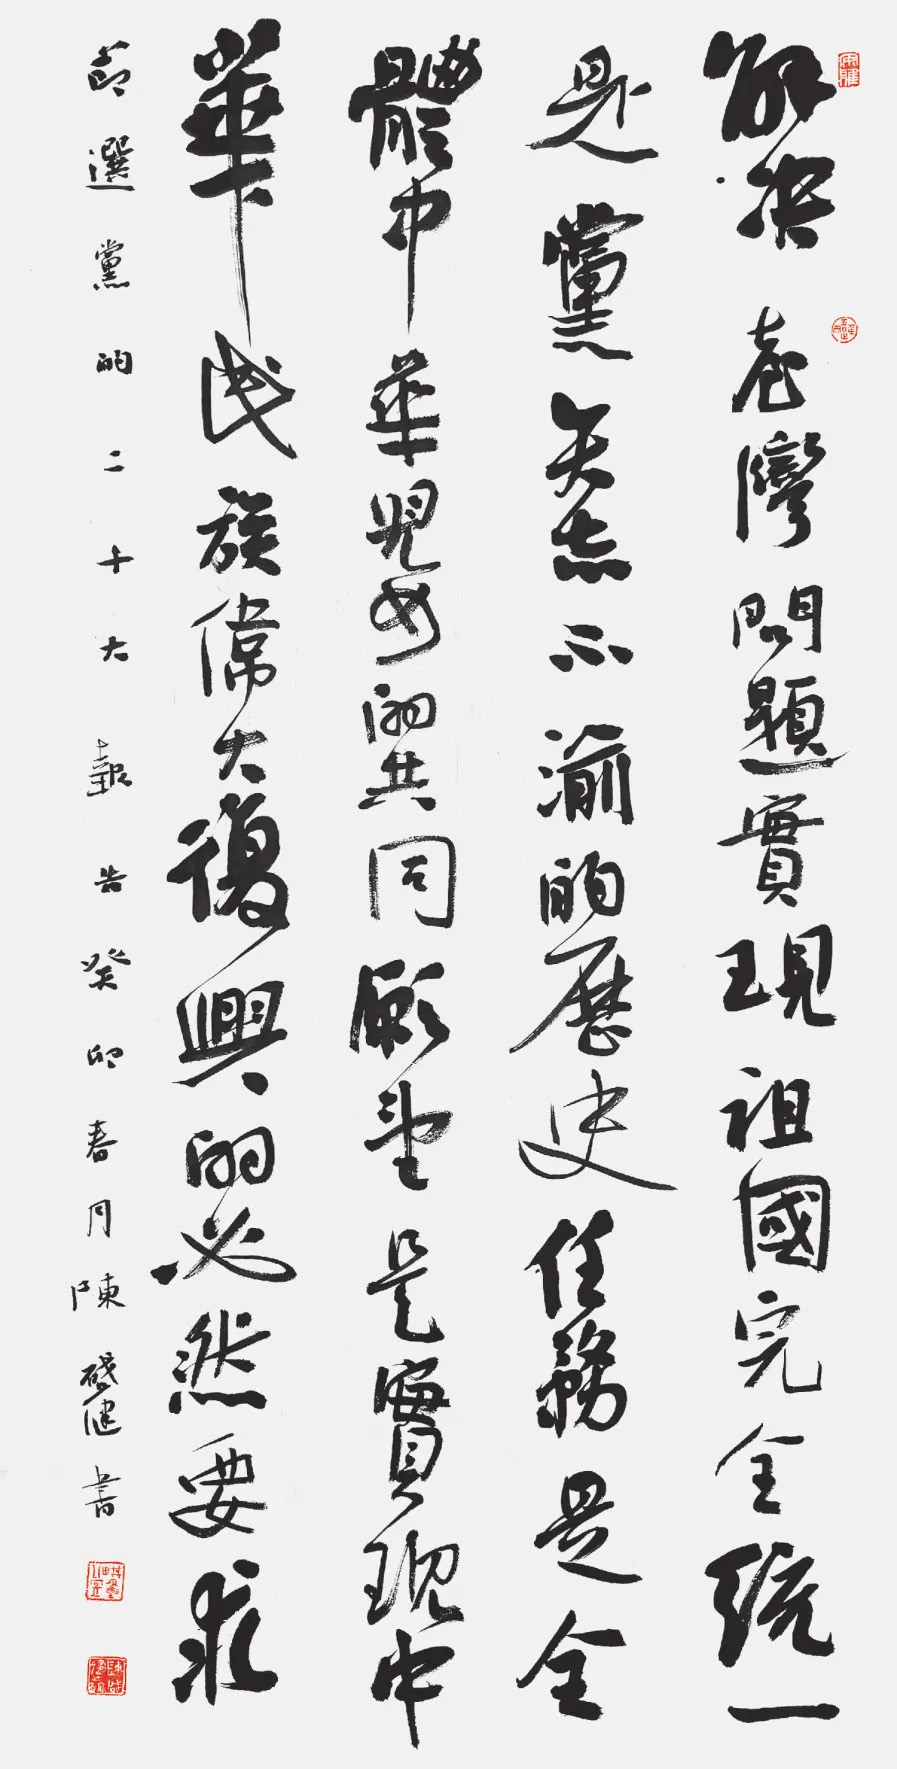 解決臺灣問題實現祖國完全統一
是黨矢志不渝的歷史任務是全
體中華兒女的共同願望是實現中
華民族偉大復興的必然要求
節選黨的二十大報告癸卯春月陳 健書